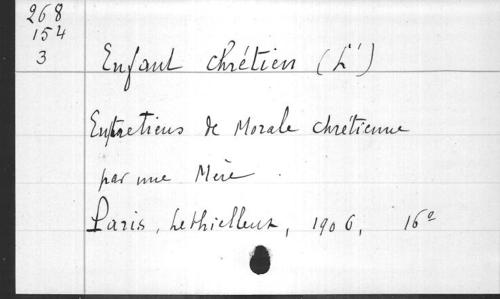 268
154
3
Enfant chrétien (L')
Entretiens de Morale chrétienne
par une Mère.
Paris, Lethielleux, 1906, 16°